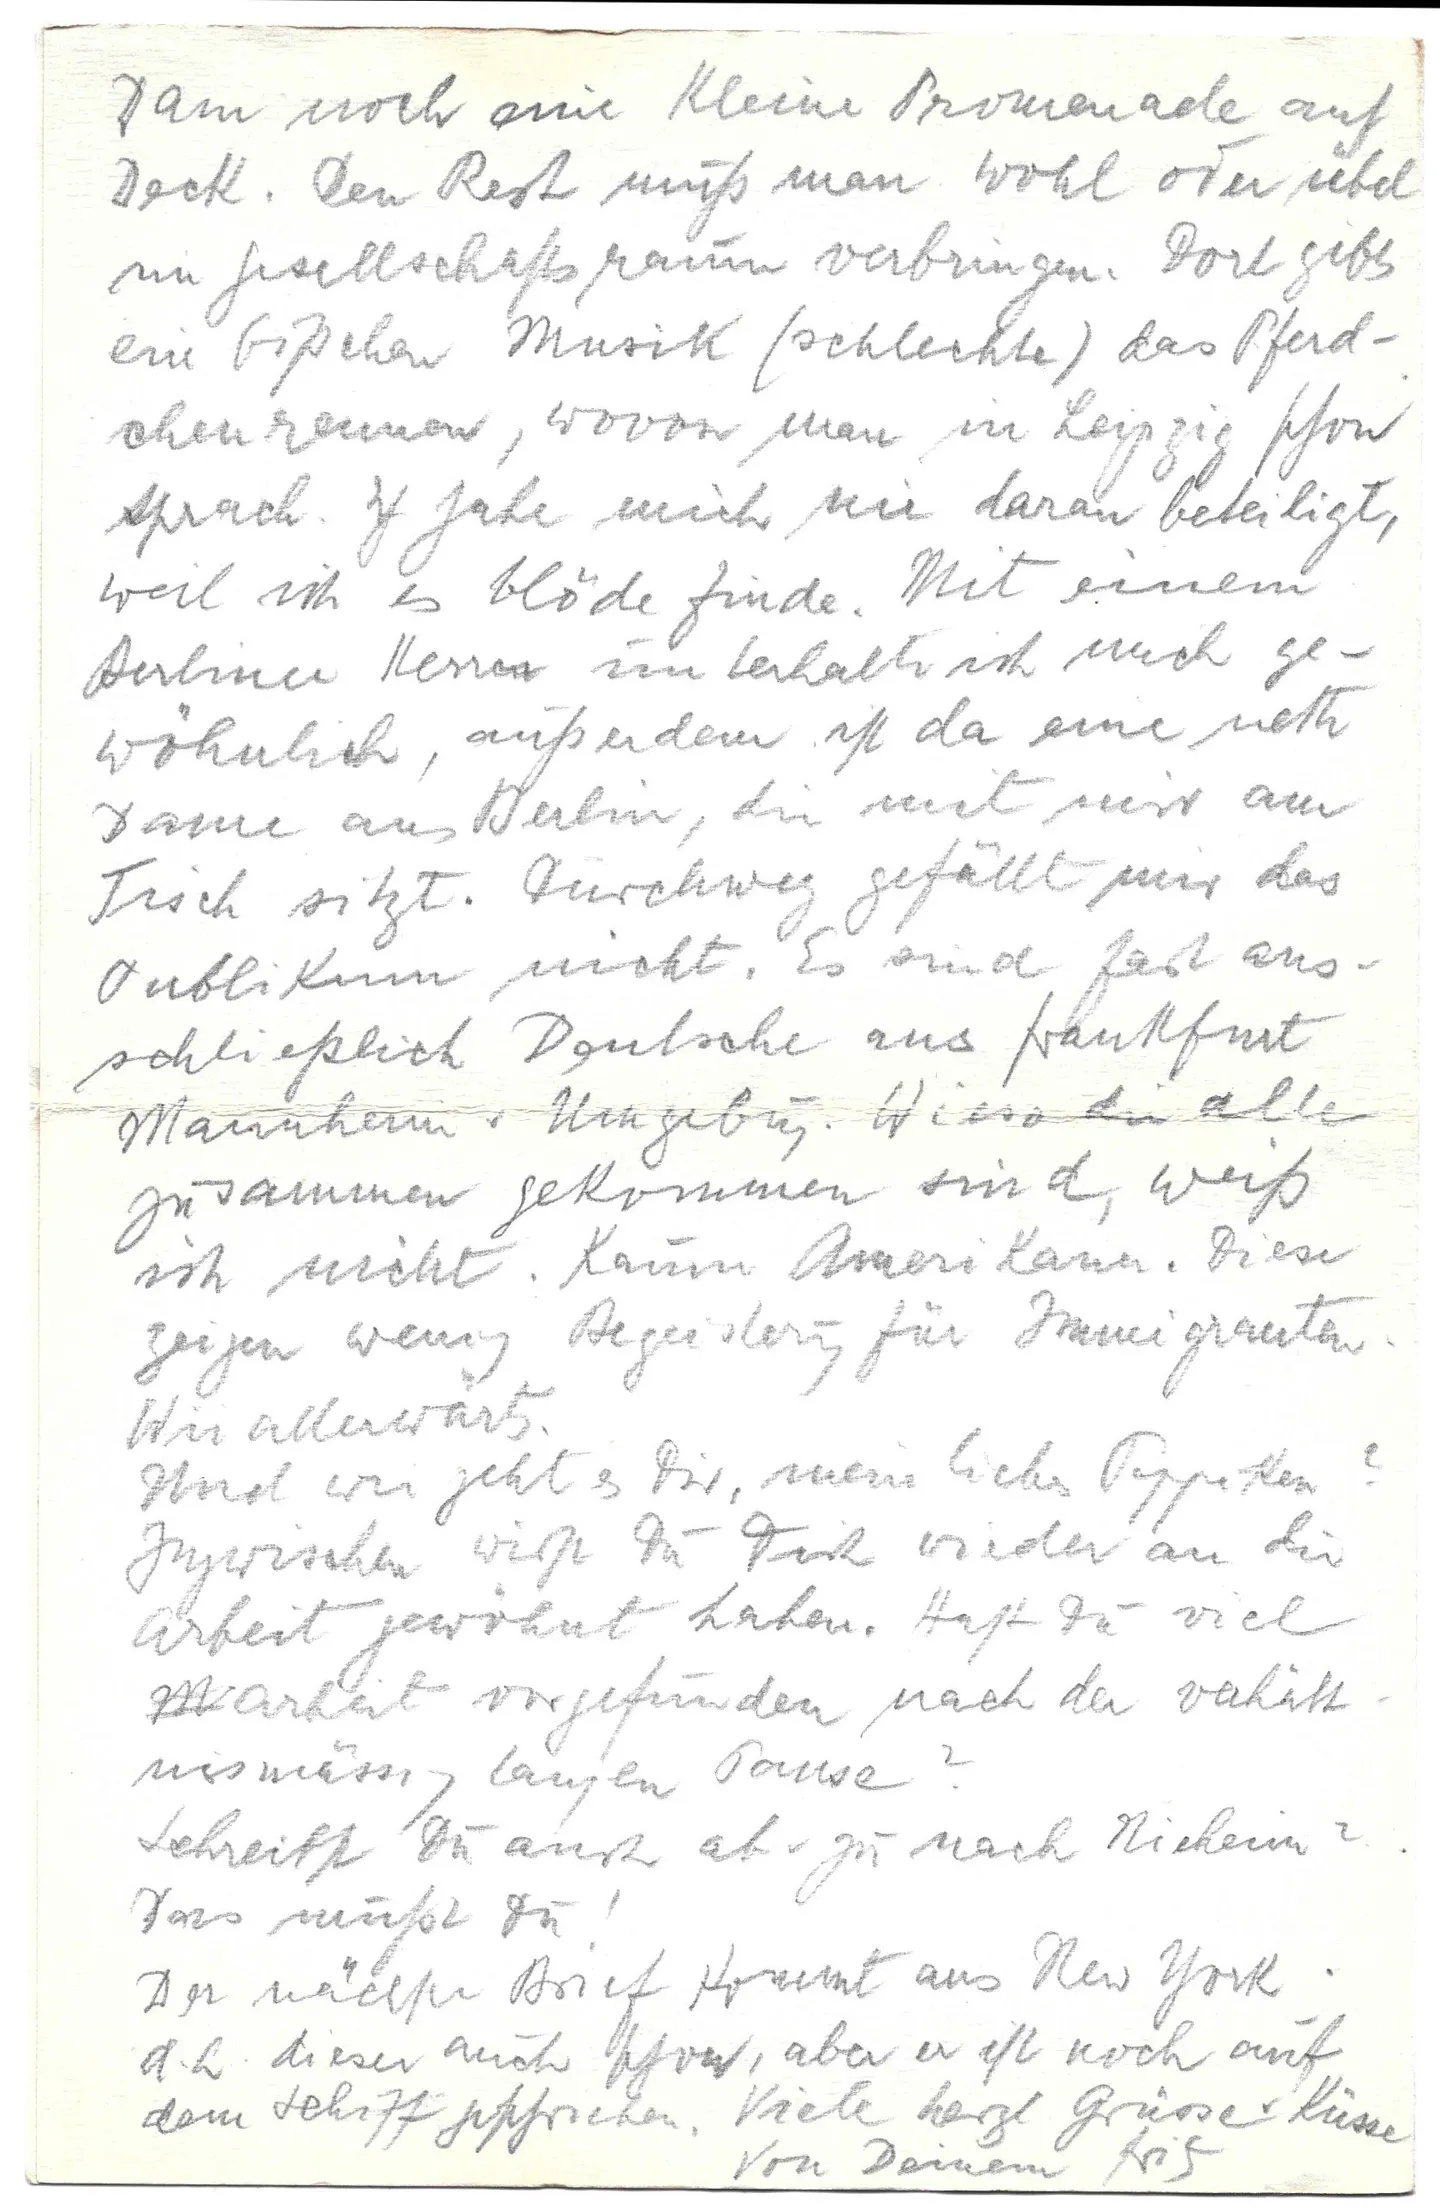 Dann noch eine kleine Promenade auf
Deck. Den Rest muß man wohl oder übel
im Gesellschaftsraum verbringen. Dort gibts
ein bißchen Musik (schlechte) das Pferd-
chenrennen, wovon man in Leipzig schon
sprach. Ich habe mich nie daran beteiligt,
weil ich es blöde finde. Mit einem
Berliner Herrn unterhalte ich mich ge-
wöhnlich, außerdem ist da eine nette
Dame aus Berlin, die mit mir am
Tisch sitzt. Durchweg gefällt mir das
Publikum nicht. Es sind fast aus-
schließlich Deutsche aus Frankfurt
Mannheim u Umgebung. Wieso die alle
zusammen gekommen sind, weiß
ich nicht. Kaum Amerikaner. Diese
zeigen wenig Begeisterung für Immigranten.
Wie allerwärts.
Und wie geht es Dir, mein liebes
Inzwischen wirst Du Dich wieder an die
Arbeit gewöhnt haben. Hast Du viel
Arbeit vorgefunden nach der verhält-
nismässig langen Pause?
Schreibst Du auch ab u zu nach Nieheim?
Das mußt Du!
Der nächste Brief kommt aus New York.
d.h. dieser auch schon, aber er ist noch auf
dem Schiff geschrieben. Viele herzl Grüsse u Küsse
von Deinem Fritz